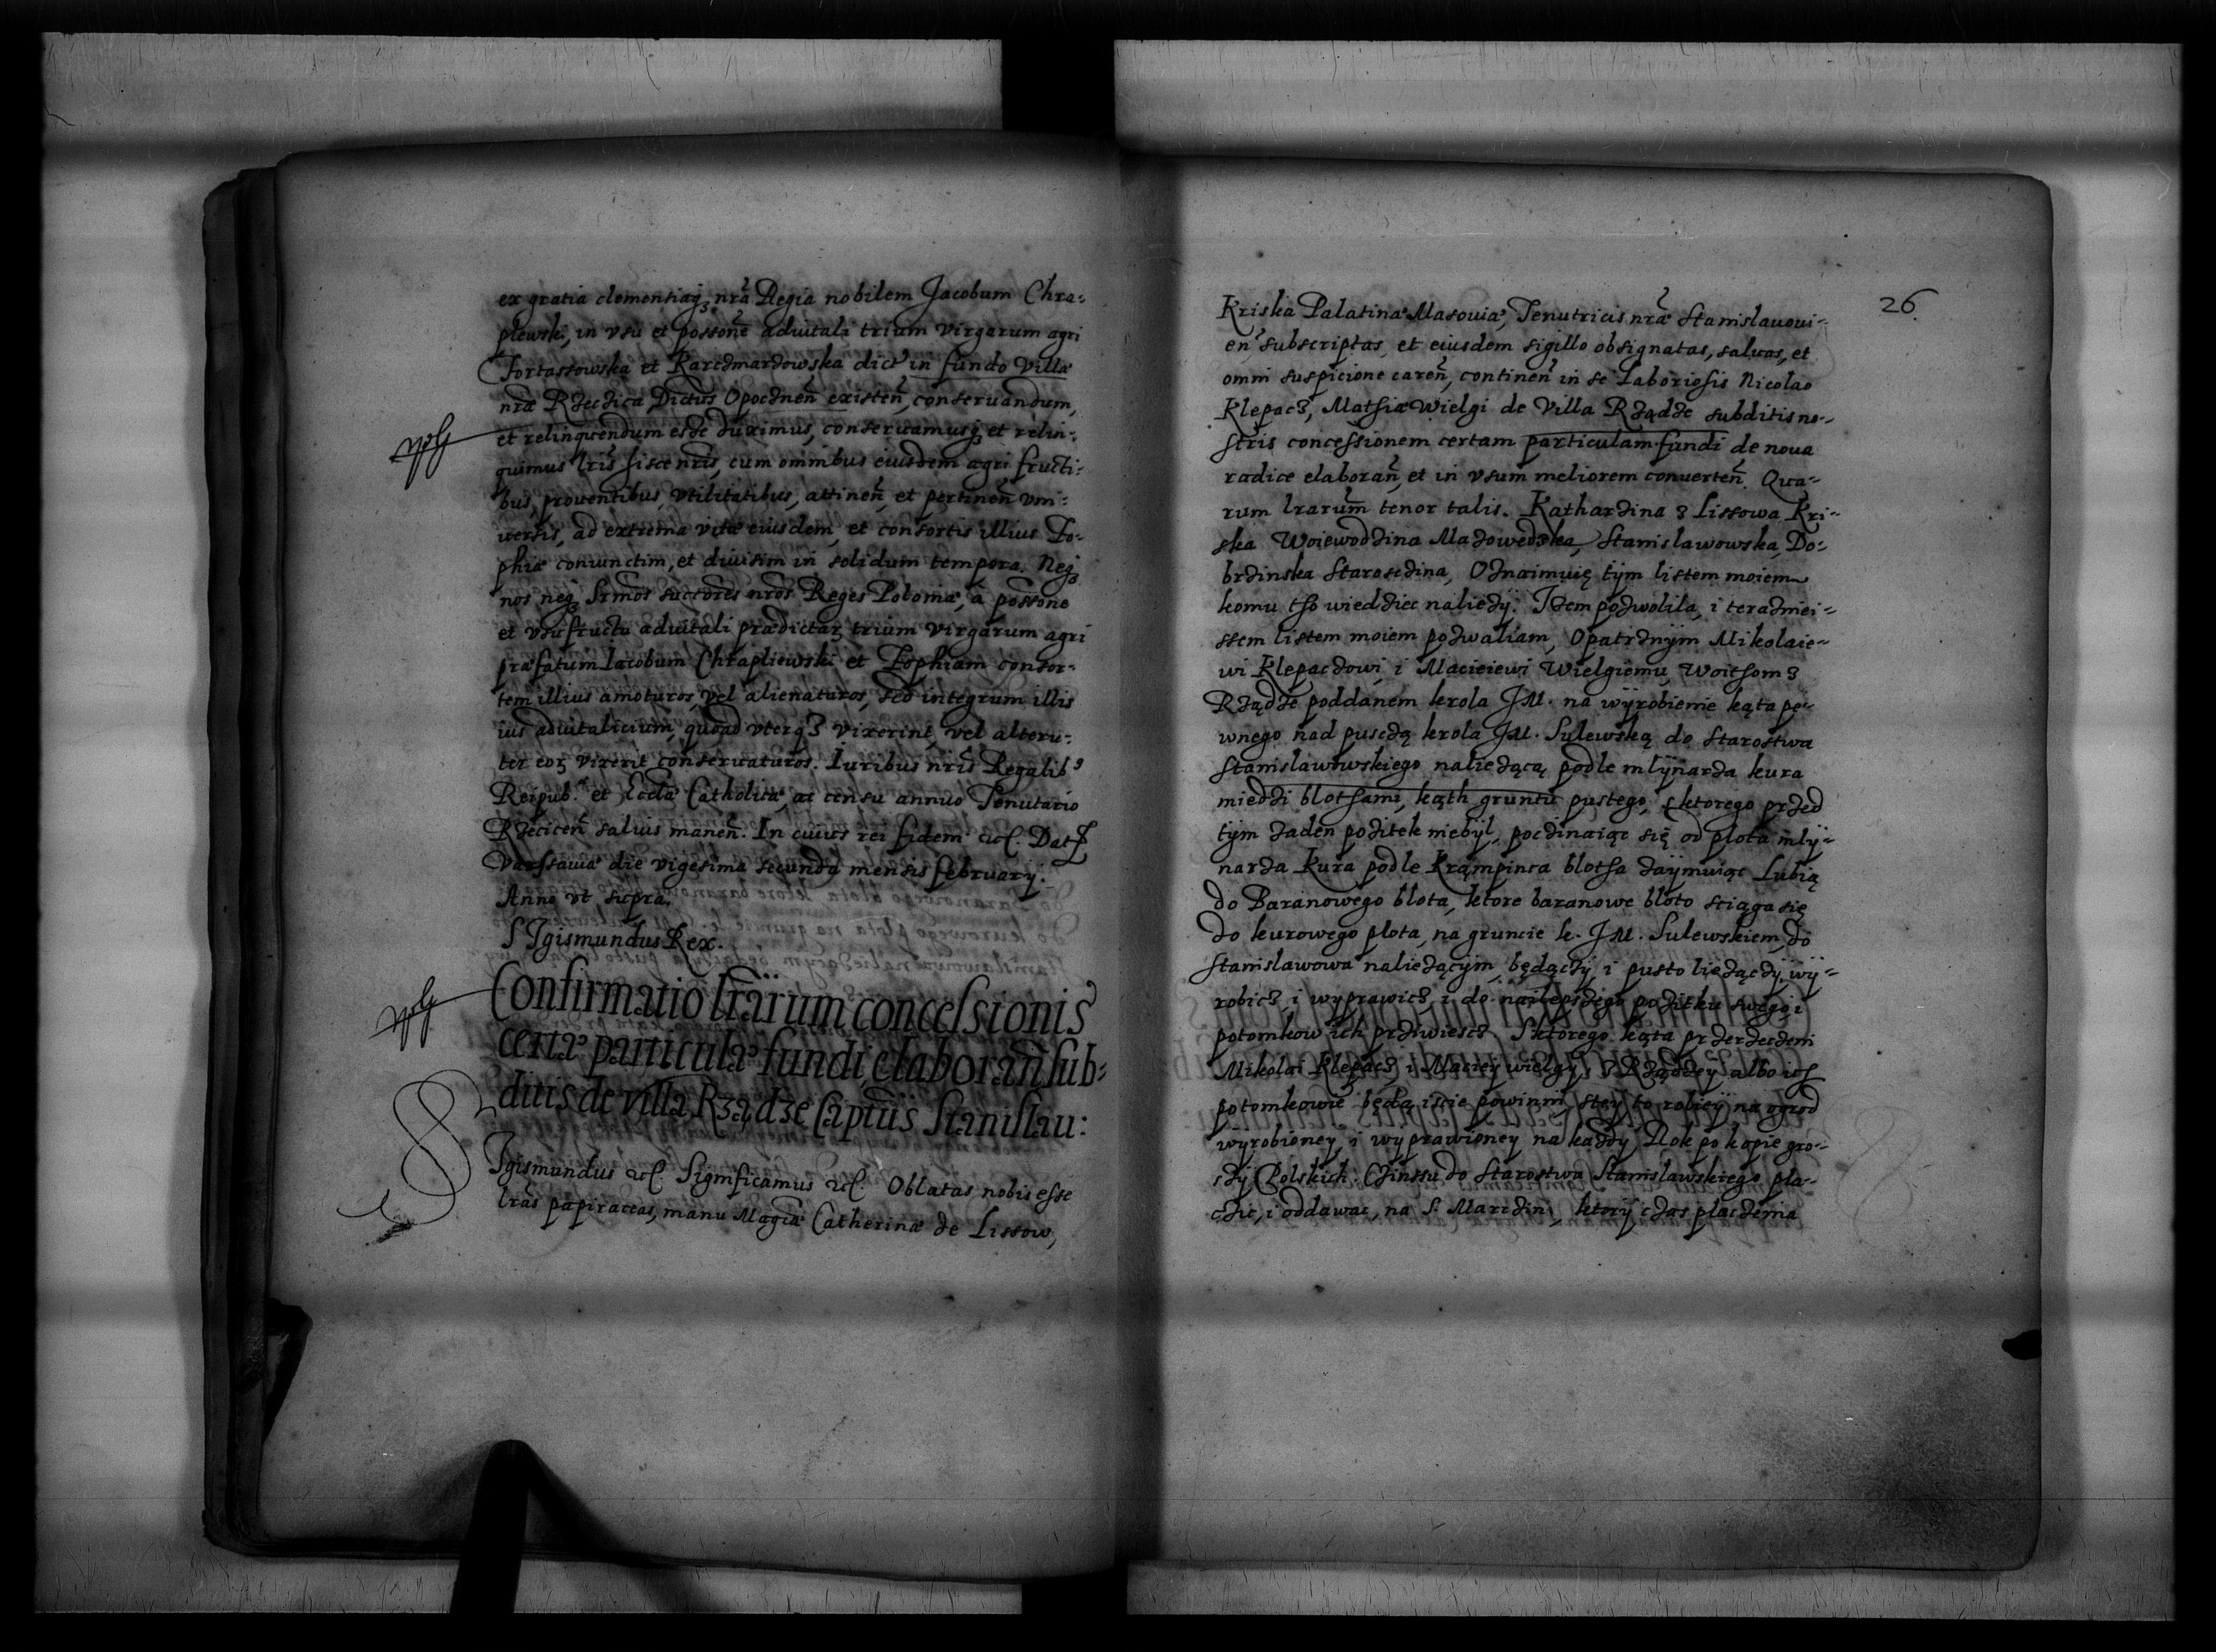 ex gratia clementiaq3 nrã Regia nobilem Jacobum Chra-
plewski, in vsu et possone aduitali trium virgarum agri
Tortassowska et Karczmarzowska dict in fundo Villæ
nræ Rzeczica Dictus Opoczneñ existeñ, conseruandum,
et relinquendum esse duximus, conseruamusq3 et relin-
quimus lris hisce nris, cum omnibus eiusdem agri fructi-
bus, prouentibus, vtilitatibus, attineñ et pertineñ vni-
uersis, ad extrema vitæ eiusdem, et consortis illius Zo-
phiæ coniunctim, et diuisim in solidum tempora. Neq3
nos neq3 Srmos succores nros Reges Poloniæ, a possone
et vsufructu aduitali prædictar trium virgarum agri
præfatum Iacobum Chrapliewski et Zophiam consor-
tem illius amoturos, vel alienaturos, sed integrum illis
ius aduitalicium, quoad vterq3 vixerint, vel alteru-
ter eor vixerit conseruaturos. Iuribus nris Regalib9
Reipub. et Eccla Catholicæ, ac censu annuo Tenutario
Rzeciceñ saluis maneñ. In cuius rei fidem etc. Dat
Varssauiæ die vigesima secunda mensis february.
Anno vt supra.
SIgismundus Rex.
Confirmatio lrarum concessionis
certæ particulæ fundi elaborañ sub-
ditis de villa Rządze Captus Stanislau:
SIgismundus etc. Significamus etc. Oblatas nobis esse
lras papiraceas, manu Magcæ Catherinæ de Lissow,
26
Kriska Palatinæ Masouiæ, Tenutricis nræ Stanislauoui-
eñ subscriptas, et eiusdem sigillo obsignatas, saluas, et
omni suspicione careñ, contineñ in se Laboriosis Nicolao
Klepacz, Mathiæ Wielgi de Villa Rządze subditis no-
stris concessionem certam particulam fundi de noua
radice elaborañ, et in vsum meliorem conuerteñ. Qua-
rum lrarum tenor talis. Katharzina z Lissowa Kri-
ska Woiewodzina Mazowedzka, Stanislawowska, Do-
brzinska Starosczina, Oznaimuię tym listem moiem
komu tho wiedziec naliezy. Izem pozwolila, i terazniei-
ssem listem moiem pozwaliam, Opatrznym Mikolaie-
wi Klepaczowi, i Macieiewi Wielgiemu, Woithom z
Rządze poddanem krola JM. na wyrobienie kąta pe-
wnego nad pusczą krola JM. Sulewską do Starostwa
Stanislawowskiego naliezącą podle mlynarza kura
miedzi blothami, kąth gruntu pustego, s ktorego przed
tym zaden pozitek niebyl, poczinaiąc się od plota mly-
narza Kura podle Krampinca blotha zaymuiąc Lubią
do Baranowego blota, ktore baranowe bloto sciąga się
do kurowego plota, na gruncie k. JM. Sulewskiem, do
Stanislawowa naliezącym, będączy i pusto liezączy, wy-
robicz, i wyprawicz, i do nailepszego pozitku swego, i
potomkow ich prziwiescz. S ktorego kąta przerzeczeni
Mikolai Klepacz, i Maciey wielgy, z Rządzey albo ich
potomkowie będą iscie powinni, s tey to robiey na ogrod
wyrobioney, i wyprawioney na kazdy Rok po kopie gro-
szy Polskich. Czinssu do Starostwa Stanislawskiego pla-
czic, i oddawac, na S. Marczin, ktory czas placzenia